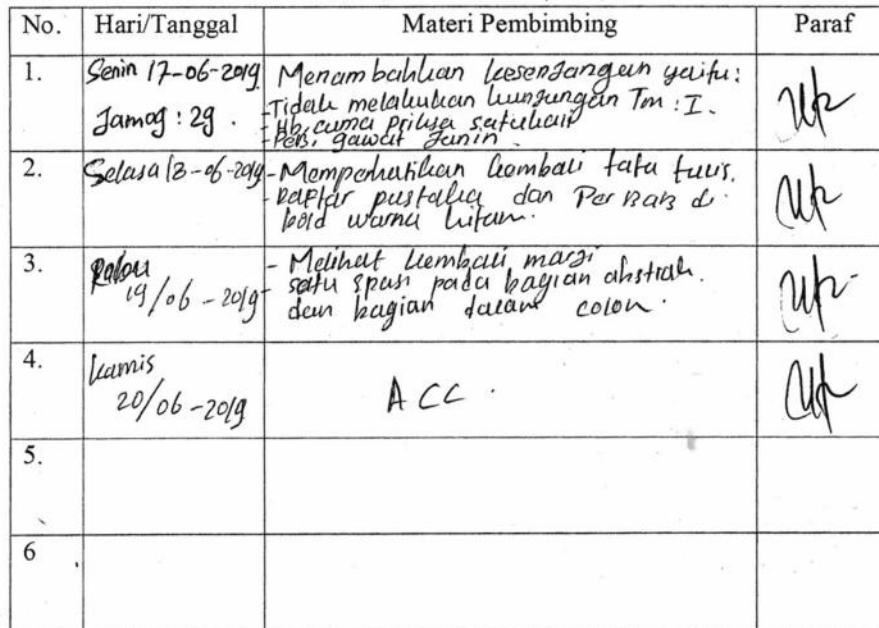 No. Hari/Tanggal Materi Pembimbing Paraf
1. Senin 17-06-2019 Menambahkan kesenjangan yaitu:
Jamog : 29. - Tidak melakukan kunjungan Tm : I.
- Hb. cuma priksa satukali
- Pers. gawat Janin.
2. Selasa 18-06-2019 - Memperhatikan kembali tata tulis.
- Daftar pustaka dan Per Bab di
bold warna hitam.
3. Rabu - Melihat kembali margi
19/06-2019 - satu spasi pada bagian abstrak.
dan bagian dalam colon.
4. Kamis
20/06-2019 ACC.
5.
6